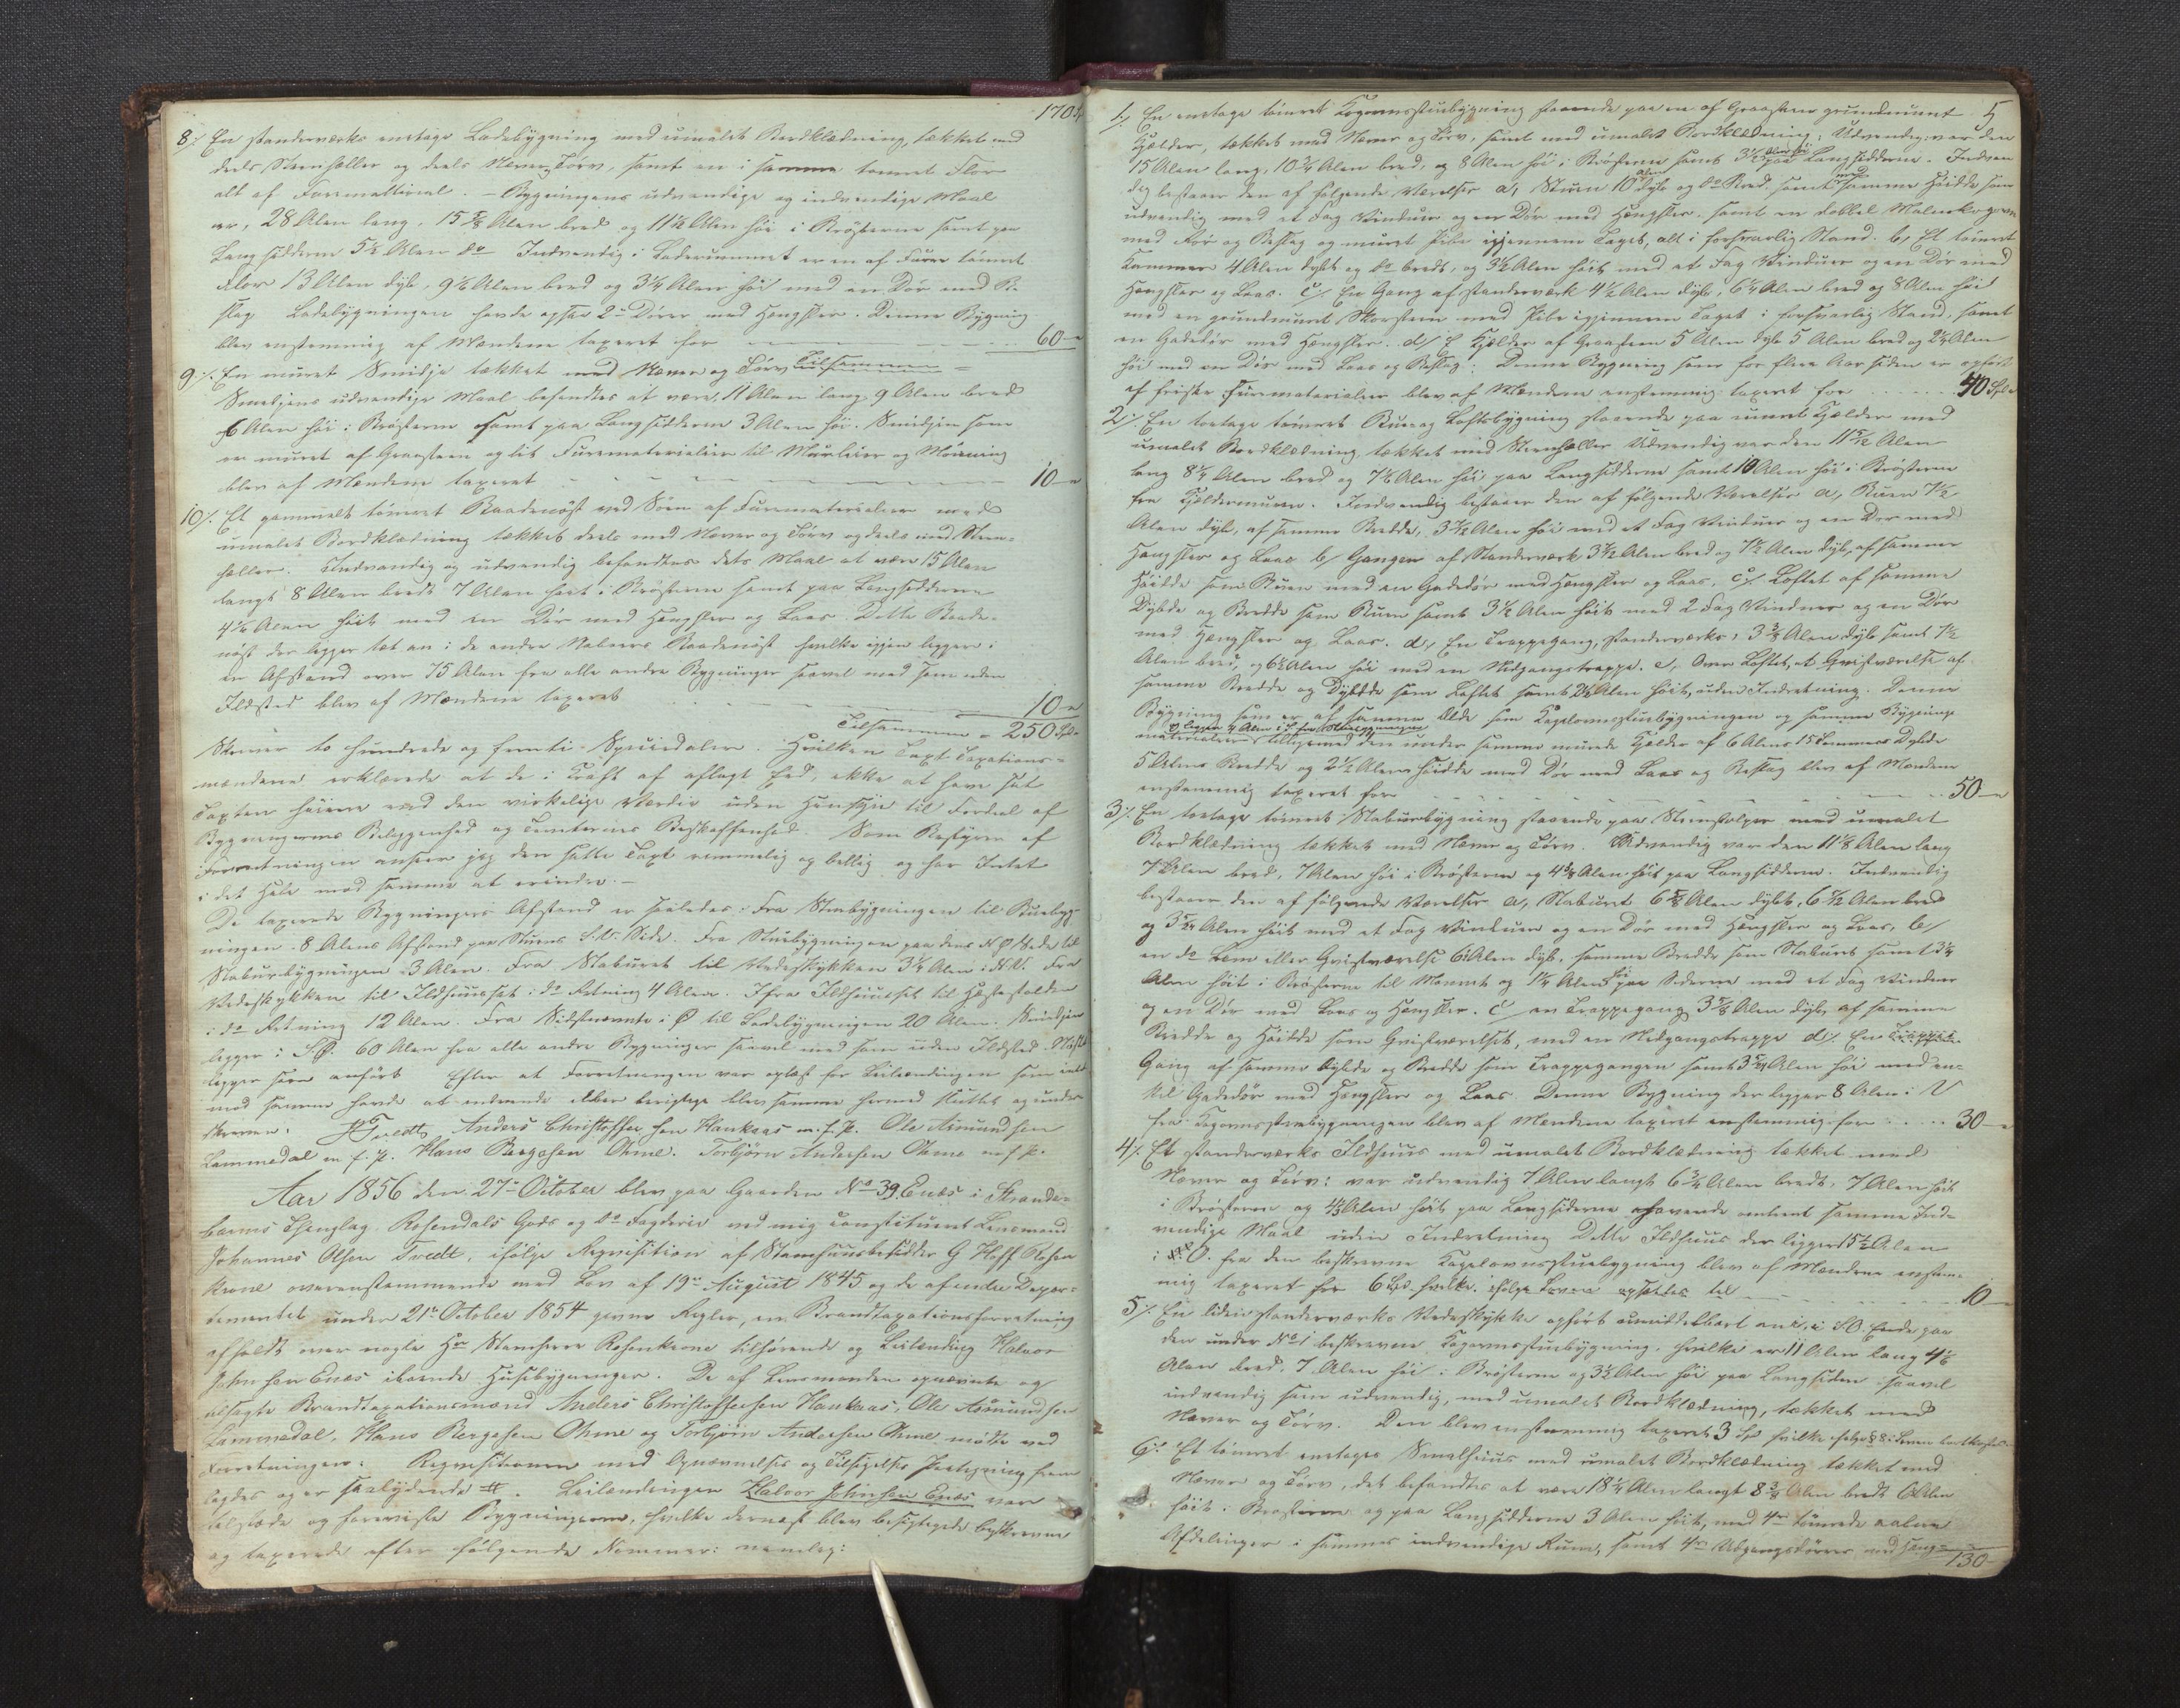 170 S
8/. En standerværks enetages Ladebygning med umalet Bordklædning, tækket med
deels Steenhæller og deels Næver og Tørv, samt en i samme tømret Flor
alt af Furematerial. – Bygningens udvendige og indvendige Maal
er, 28 Alen lang, 15 5/8 Alen bred og 11 1/2 Alen høi i Brøsterne samt paa
Langsidderne 5 1/2 Alen do Indvendig i Laderummet er en af Furer tømret
Flor 13 Alen dyb, 9 1/2 Alen bred og 3 1/4 Alen høi med en Dør med Be-
slag Ladebygningen havde ogsaa 2de Dører med Hængsler. Denne Bygning
blev enstemmig af Mændene taxeret for 60 "
9/. En muret Smidje tækket med Næver og Tørv Tilsammen
Smidjens udvendige Maal befandtes at være, 11 Alen lang, 9 Alen bred
6 Alen høi i Brøsterne samt paa Langsidderne 3 Alen høi. Smidjen som
er muret af Graasteen og lidt Furematerialier til og Mønning
blev af Mændene taxeret 10 "
10/. Et gammelt tømret Baadenøst ved Søen af Furematerialier med
umalet Bordklædning tækket deels med Næver og Tørv og deels med Steen-
hæller. Indvendig og udvendig befandtes dets Maal at være 15 Alen
langt 8 Alen bredt 7 Alen høit i Brøsterne samt paa Langsidderne
4 1/2 Alen høit med en Dør med Hængsler og Laas. Dette Baade-
nøst der ligger tæt an i de andre Naboers Baadenøst hvilke igjen ligger i
en Afstand over 75 Alen fra alle andre Bygninger saavel med som uden
Ildsted blev af Mændene taxeret 10 "
Tilsammen = 250 Spd.
Skriver to hundrede og femti Speciedaler. Hvilken Taxt Taxations-
mændene erklærede at de i Kraft af aflagt Eed, ikke at have sat
Taxten høiere end den virkelige Værdie uden Hensyn til Fordeel af
Bygningernes Beliggenhed og Tomternes Beskaffenhed Som Bestyrer af
Forretningen anseer jeg den satte Taxt rimmelig og billig og har Intet
i det Hele mod samme at erindre. –
De taxerede Bygningers Afstand er saaledes: Fra Stuebygningen til Buebyg-
ningen 8 Alens Afstand paa Stuens S.V. Side. Fra Stuebygningen paa dens N.Ø. Side til
Staburbygningen 3 Alen. Fra Staburet til Vedeskykken 3 1/4 Alen i N.V. Fra
Vedeskykken til Ildhuuset i do Retning 4 Alen. Ifra Ildhuuset til Hestestalden
i do Retning 12 Alen. Fra Sidstnævnte i Ø til Ladebygningen 20 Alen. Smidjen
ligger i S.Ø. 60 Alen fra alle andre Bygninger saavel med som uden Ildsted. Nøstet
ligger som anført Efter at Forretningen var oplæst for Leilændingen som intet
mod samme havde at indvende eller berigtige blev samme hermed sluttet og under
skreven. JOTvedt, Anders Christoffersen Haukaas m.f.P. Ole Asmundsen
Lammedal m.f.P. Hans Bergesen Ohme. Torbjørn Andersen Ohme m f P.
Aar 1856 den 27de October blev paa Gaarden No 39. Enæs i Strande-
barms Thinglag, Rosendals Gods og do Fogderie ved mig constitueret Lensmand
Johannes Olsen Tvedt, ifølge Reqvisition af Stamhuusbesidder G Hoff Rosen
krone overensstemmende med Lov af 19de August 1845 og de af Indre Depar-
tementet under 21de October 1854 givne Regler, en Brandtaxationsforretning
afholdt over nogle Hr Stamherre Rosenkrone tilhørende og Leilænding Halvor
Johnsen Enæs iboende Huusebygninger. De af Lensmanden opnævnte og
tilsagte Brandtaxationsmænd Anders Christoffersen Haukaas, Ole Asmundsen
Lammedal, Hans Bergesen Ohme og Torbjørn Andersen Ohme mødte ved
Forretningen. Reqvisitionen med Opnævnelses og Tilsigelses Paategning frem
lagdes og er saalydende #. Leilændingen Halvor Johnsen Enæs var
tilstæde og foreviiste Bygningerne, hvilke dernæst blev besigtigede beskrevne
og taxerede efter følgende Nummer: nemlig:
5
1/. En enetage tømret Kogovnsstuebygning staaende paa en af Graasteen grundmuret
Kjelder, tækket med Næver og Tørv, samt med umalet Bordklædning. Udvendig var den
15 Alen lang, 10 3/4 Alen bred, og 8 Alen høi i Brøsterne samt 3 1/2 Alen høi paa Langsidderne. Indven
dig bestaaer den af følgende Værelser a, Stuen 10 Alen dyb og do Bred, samt med samme Høide som
udvendig med et Fag Vinduer og en Dør med Hængsler, samt en dobbel Kogovn
med Rør og Beslag og muret Pibe igjennem Taget, alt i forsvarlig Stand. b, Et tømret
Kammer 4 Alen dybt og do bredt, og 3 1/2 Alen høit med et Fag Vinduer og en Dør med
Hængsler og Laas. c/ En Gang af standerværk 4 1/2 Alen dyb, 6 1/4 Alen bred og 8 Alen høi
med en grundmuret Skorsteen med Pibe igjennem Taget i forsvarlig Stand, samt
en Gadedør med Hængsler. d/ Kjelder af Graasteen 5 Alen dyb 5 Alen bred og 2 1/4 Alen
høi med en Dør med Laas og Beslag. Denne Bygning som for flere Aar siden er opført
af friske Furematerialier blev af Mændene enstemmig taxeret for 40 Spd.
2/. En toetage tømret Bue og Loftsbygning staaende paa muret Kjelder med
umalet Bordklædning, tækket med Steenhæller Udvendig var den 11 5/12 Alen
lang 8 1/4 Alen bred og 7 1/6 Alen høi paa Langsidderne samt 10 Alen høi i Brøsterne
fra Kjeldermuren. Indvendig bestaaer den af følgende Værelser a, Buen 7 1/2
Alen dyb, af samme Bredde, 3 1/2 Alen høi med et Fag Vinduer og en Dør med
Hængsler og Laas b/ Gangen af Standerværk 3 1/2 Alen bred og 7 1/2 Alen dyb, af samme
Høide som Buen med en Gadedør med Hængsler og Laas, c/. Loftet af samme
Dybde og Bredde som Buen samt 3 1/2 Alen høit med 2 Fag Vinduer og en Dør
med Hængsler og Laas. d, En Trappegang, standerværks, 3 3/8 Alen dyb samt 7 1/2
Alen bred, og 6 1/2 Alen høi med en Nidgangstrappe. e, Over Loftet, et Gvistværelse af
samme Bredde og Dybde som Loftet samt 2 1/2 Alen høit, uden Indretning. Denne
Bygning som er af samme Ælde som Kogelovnsstuebygningen og samme Bygnings-
materialier og ligger 4 Alen i fra Stuebygningen tilligemed den under samme murede Kjelder af 6 Alens 15 Tommers Dybde
5 Alens Bredde og 2 1/2 Alens Høide med Dør med Laas og Beslag blev af Mændene
enstemmig taxeret for 50 "
3/. En toetage tømret Staburbygning staaende paa Steenstolper med umalet
Bordklædning tækket med Næver og Tørv. Udvendig var den 11 1/8 Alen lang
7 Alen bred, 7 Alen høi i Brøsterne og 4 3/4 Alen høit paa Langsidderne. Indvendig
bestaaer den af følgende Værelser a, Staburet 6 5/8 Alen dybt, 6 1/2 Alen bred
og 3 5/24 Alen høit med et Fag Vinduer og en Dør med Hængsler og Laas, b/
en do Lem eller Gvistværelse 6 Alen dyb, samme Bredde som Staburet samt 3 1/4
Alen høit i Brøsterne til Mønnet og 1 1/4 Alen høi paa Siderne med et Fag Vinduer
og en Dør med Laas og Hængsler. c/ en Trappegang 3 5/8 Alen dyb, af samme
Bredde og Høide som Gvistværelset, med en Nidgangstrappe d/. En
Gang af samme Dybde og Bredde som Trappegangen samt 3 5/24 Alen høi med en-
kel Gadedør med Hængsler og Laas Denne Bygning der ligger 8 Alen i V
fra Kogovnsstuebygningen blev af Mændene taxeret enstemmig for 30 "
4/. Et standerværks Ildhuus med umalet Bordklædning tækket med
Næver og Tørv: var udvendig 7 Alen langt 6 3/4 Alen bredt, 7 Alen høit
i Brøsterne og 4 1/3 Alen høit paa Langsiderne havende omtrent samme Ind-
vendige Maal uden Indretning Dette Ildhuus der ligger 15 1/2 Alen
i O. fra den beskrevne Kogelovnsstuebygning blev af Mændene enstem-
mig taxeret for 6 Spd. hvilke ifølge Loven opsættes til 10 "
5/. En liden standerværks Vedeskykke opført umiddelbart an i SO. Ende paa
den under No 1 beskrevne Kogovnsstuebygning, hvilke er 11 Alen lang 4 1/6
Alen bred, 7 Alen høi i Brøsterne og 3 1/2 Alen høi paa Langsiden saavel
indvendig som udvendig, med umalet Bordklædning, tækket med
Næver og Tørv. Den blev enstemmig taxeret 3 Spd hvilke ifølge § 8 i Loven bortkastes.
6/. Et tømret enetages Smalhuus med umalet Bordklædning tækket med
Næver og Tørv, det befandtes at være 18 1/4 Alen langt 8 3/4 Alen bredt 6 Alen
høit i Brøsterne og paa Langsidderne 3 Alen høit, med 4re tømrede
Afdelinger i sammes indvendige Rum, samt 4re Udgangsdører med Hæng-
130